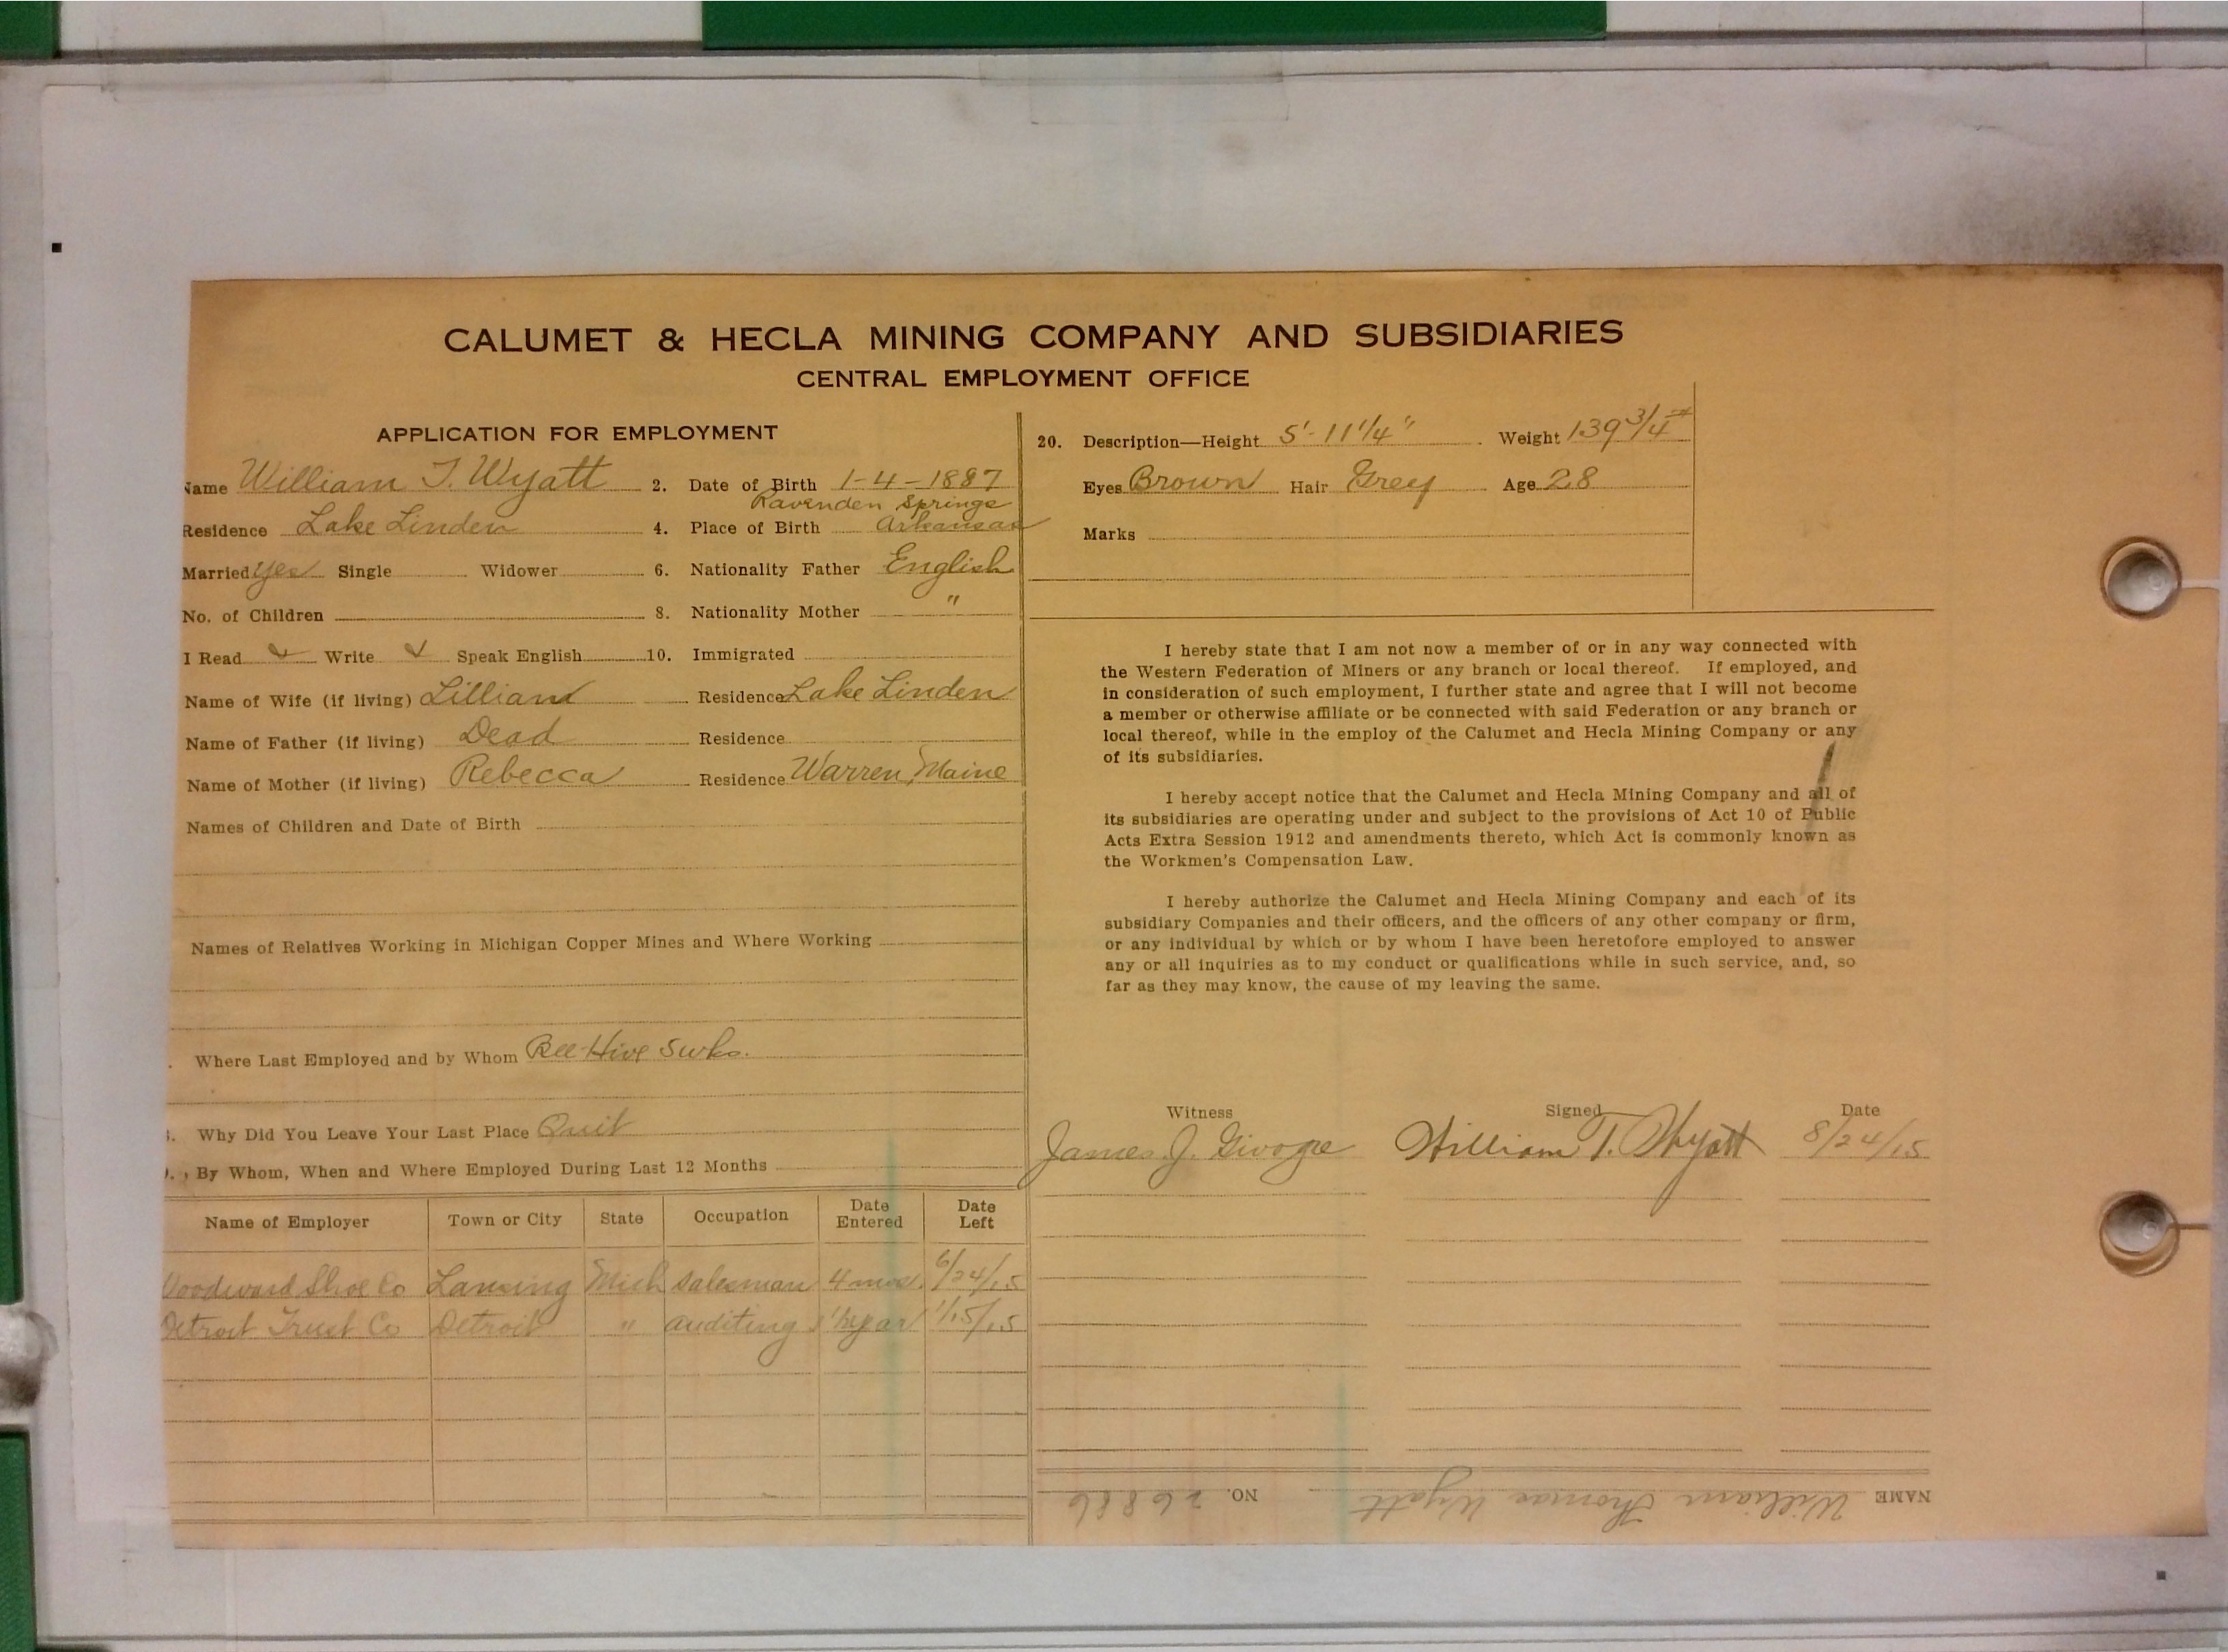 CALUMET & HECLA MINING COMPANY AND SUBSIDIARIES
CENTRAL EMPLOYMENT OFFICE
APPLICATION FOR EMPLOYMENT
Name William T. Wyatt 2. Date of Birth 1-4-1887
Ravenden Springs
Residence Lake Linden 4. Place of Birth Arkansas
Married yes Single Widower 6. Nationality Father English
No. of Children 8. Nationality Mother "
I Read ✓ Write ✓ Speak English 10. Immigrated
Name of Wife (if living) Lillian Residence Lake Linden
Name of Father (if living) Dead Residence
Name of Mother (if living) Rebecca Residence Warren, Maine
Names of Children and Date of Birth
Names of Relatives Working in Michigan Copper Mines and Where Working
Where Last Employed and by Whom Bee Hive
Why Did You Leave Your Last Place Quit
By Whom, When and Where Employed During Last 12 Months
Name of Employer Town or City State Occupation Date Entered Date Left
Woodward Shoe Co Lansing Mich Salesman 4 mos. 6/24/15
Detroit Trust Co Detroit " auditing 1/2 year 1/15/15
20. Description—Height 5'-11 1/4" Weight 139 3/4 #
Eyes Brown Hair Grey Age 28
Marks
I hereby state that I am not now a member of or in any way connected with
the Western Federation of Miners or any branch or local thereof. If employed, and
in consideration of such employment, I further state and agree that I will not become
a member or otherwise affiliate or be connected with said Federation or any branch or
local thereof, while in the employ of the Calumet and Hecla Mining Company or any
of its subsidiaries.
I hereby accept notice that the Calumet and Hecla Mining Company and all of
its subsidiaries are operating under and subject to the provisions of Act 10 of Public
Acts Extra Session 1912 and amendments thereto, which Act is commonly known as
the Workmen's Compensation Law.
I hereby authorize the Calumet and Hecla Mining Company and each of its
subsidiary Companies and their officers, and the officers of any other company or firm,
or any individual by which or by whom I have been heretofore employed to answer
any or all inquiries as to my conduct or qualifications while in such service, and, so
far as they may know, the cause of my leaving the same.
Witness Signed Date
James J. William T. Wyatt 8/24/15
NAME William Thomas Wyatt NO. 26886